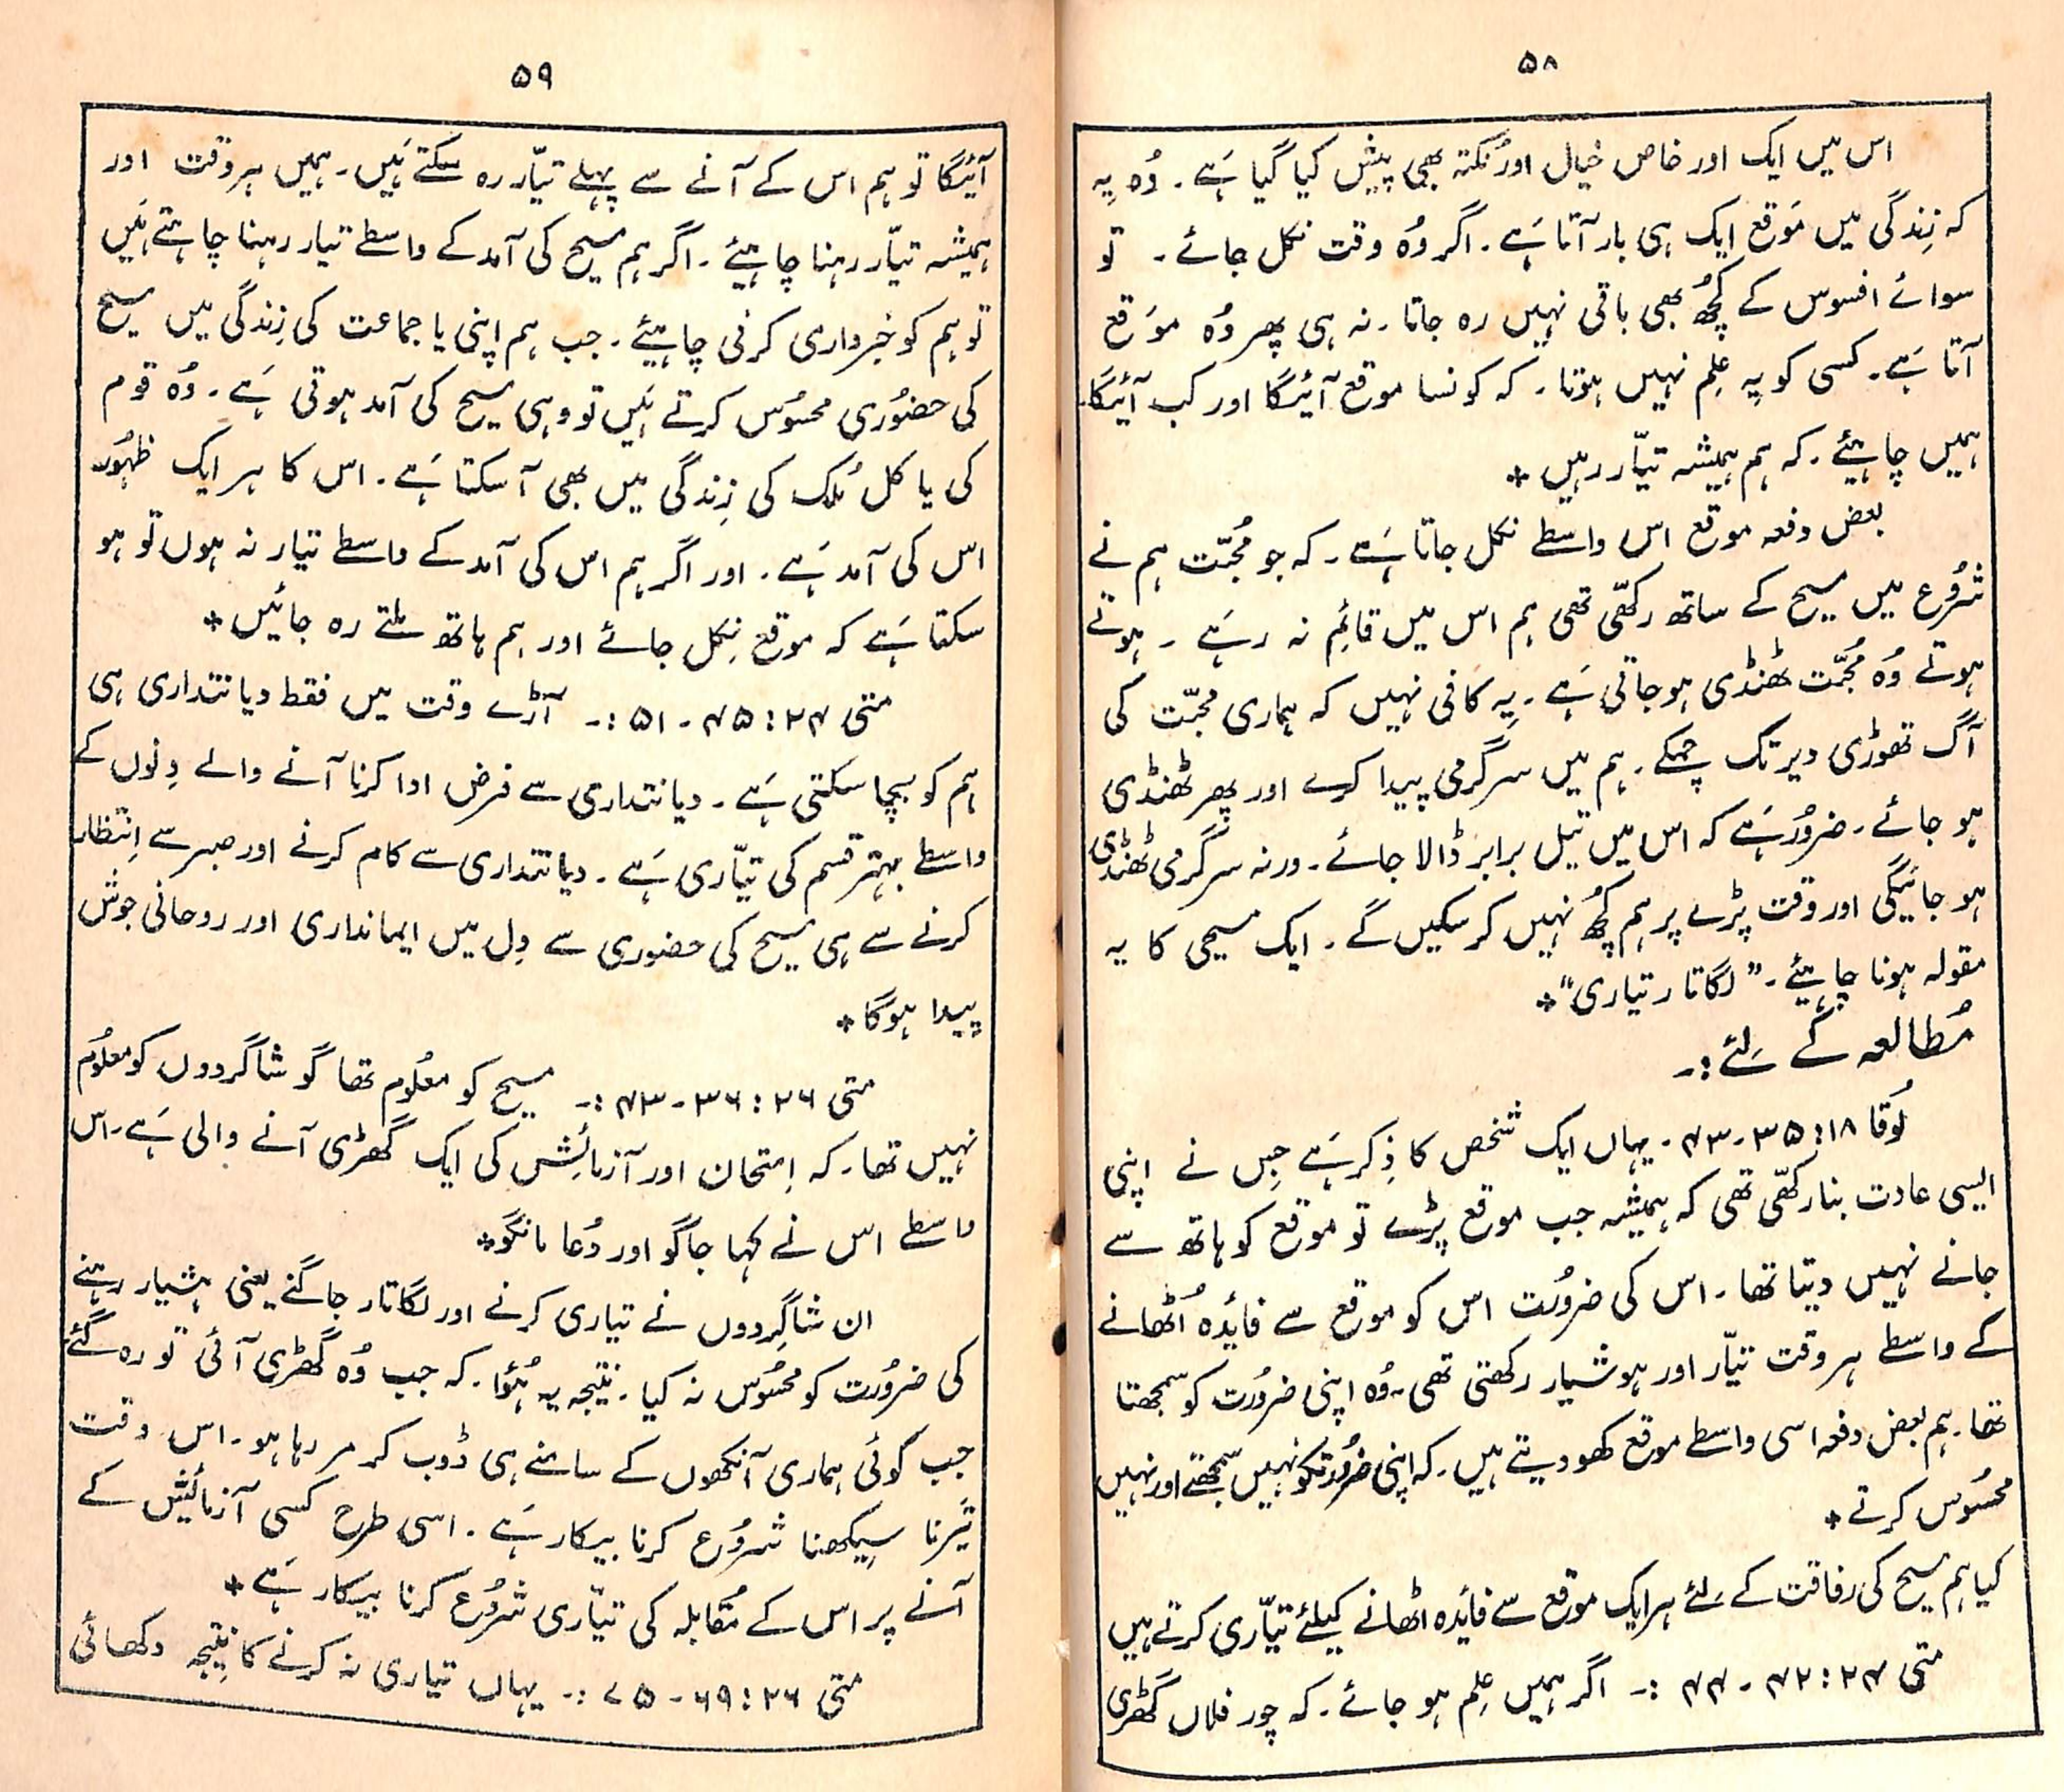 ۵۸
اس میں ایک اور خاص خیال اور نکتہ بھی پیش کیا گیا ہَے۔ وُہ یِہ
کہ زِندگی میں مَوقع ایک ہی بار آتا ہَے۔ اگر وُہ وقت نکل جائے۔ تو
سوائے افسوس کے کچُھ بھی باقی نہیں رہ جاتا۔ نہ ہی پھر وُہ موَقع
آتا ہَے۔ کسی کو یِہ عِلم نہیں ہوتا۔ کہ کونسا موقع آئیگا اور کب آئیگا۔
ہمیں چاہیئے۔ کہ ہم ہمیشہ تیّار رہیں *
بعض دفعہ موقع اس واسطے نکل جاتا ہَے۔ کہ جو مُحبّت ہم نے
شرُوع میں مسیح کے ساتھ رکھّی تھی ہم اس میں قائِم نہ رہَے ۔ ہوتے
ہوتے وُہ مُحبّت ٹھنڈی ہو جاتی ہَے۔ یِہ کافی نہیں کہ ہماری محبّت کی
آگ تھوڑی دیر تک چمکے۔ ہم میں سرگرمی پیدا کرے اور پھر ٹھنڈی
ہو جائے۔ ضرُور ہَے کہ اس میں تیل برابر ڈالا جائے۔ ورنہ سرگرمی ٹھنڈی
ہو جائیگی اور وقت پڑے پر ہم کچُھ نہیں کر سکیں گے۔ ایک مسیحی کا یہ
مقولہ ہونا چاہیئے۔ ”لگاتار تیاری“ *
مُطالعہ کے لَئے :۔
لُوقا ۱۸: ۳۵-۴۳۔ یہاں ایک شخص کا ذِکر ہَے جِس نے اپنی
ایسی عادت بنا رکھّی تھی کہ ہمیشہ جب موقع پڑے تو موقع کو ہاتھ سے
جانے نہیں دیتا تھا۔ اس کی ضرُورت اس کو موقع سے فائِدہ اُٹھانے
کے واسطے ہر وقت تیّار اور ہوشیار رکھتی تھی۔ وُہ اپنی ضرُورت کو سمجھتا
تھا۔ ہم بعض دفعہ اسی واسطے موقع کھو دیتے ہیں۔ کہ اپنی ضرُورتکو نہیں سمجھتے اور نہیں
محسُوس کرتے *
کیا ہم مسیح کی رفاقت کے لَئے ہر ایک موقع سے فائِدہ اٹھانے کیلئے تیّاری کرتے ہیں
متی ۲۴: ۴۲-۴۴ :۔ اگر ہمیں عِلم ہو جائے۔ کہ چور فلاں گھڑی
۵۹
آئیگا تو ہم اس کے آنے سے پہلے تیّار رہ سکتے ہَیں۔ ہمیں ہر وقت اور
ہمیشہ تیّار رہنا چاہیئے۔ اگر ہم مسیح کی آمد کے واسطے تیار رہنا چاہتے ہَیں
تو ہم کو خبرداری کرنی چاہیئے۔ جب ہم اپنی یا جماعت کی زِندگی میں مسیح
کی حضوُری محسُوس کرتے ہَیں تو وہی مسیح کی آمد ہوتی ہَے۔ وُہ قوم
کی یا کل مُلک کی زِندگی میں بھی آ سکتا ہَے۔ اس کا ہر ایک ظہُور
اس کی آمد ہَے۔ اور اگر ہم اس کی آمد کے واسطے تیار نہ ہوں تو ہو
سکتا ہَے کہ موقع نِکل جائے اور ہم ہاتھ ملتے رہ جائیں *
متی ۲۴: ۴۵-۵۱ :۔ آڑے وقت میں فقط دیانتداری ہی
ہم کو بچا سکتی ہَے۔ دیانتداری سے فرض ادا کرنا آنے والے دِنوں کے
واسطے بہتر قسم کی تیّاری ہَے۔ دیانتداری سے کام کرنے اور صبر سے اِنتظار
کرنے سے ہی مسیح کی حضوری سے دِل میں ایمانداری اور روحانی جوش
پیدا ہوگا *
متی ۲۶: ۳۶-۴۳ :۔ مسیح کو معلُوم تھا گو شاگردوں کو معلُوم
نہیں تھا۔ کہ اِمتحان اور آزمائش کی ایک گھڑی آنے والی ہَے۔ اس
واسطے اس نے کہا جاگو اور دُعا مانگو *
ان شاگِردوں نے تیاری کرنے اور لگاتار جاگنے یعنی ہشیار رہنے
کی ضرُورت کو محسُوس نہ کیا۔ نتیجہ یہ ہُؤا۔ کہ جب وُہ گھڑی آئی تو رہ گئے
جب کوئی ہماری آنکھوں کے سامنے ہی ڈوب کر مر رہا ہو۔ اس وقت
تَیرنا سِیکھنا شرُوع کرنا بیکار ہَے۔ اسی طرح کسی آزمائش کے
آنے پر اس کے مُقابلہ کی تیّاری شرُوع کرنا بیکار ہَے *
متی ۲۶: ۶۹-۷۵ :۔ یہاں تیاری نہ کرنے کا نتِیجہ دکھائی